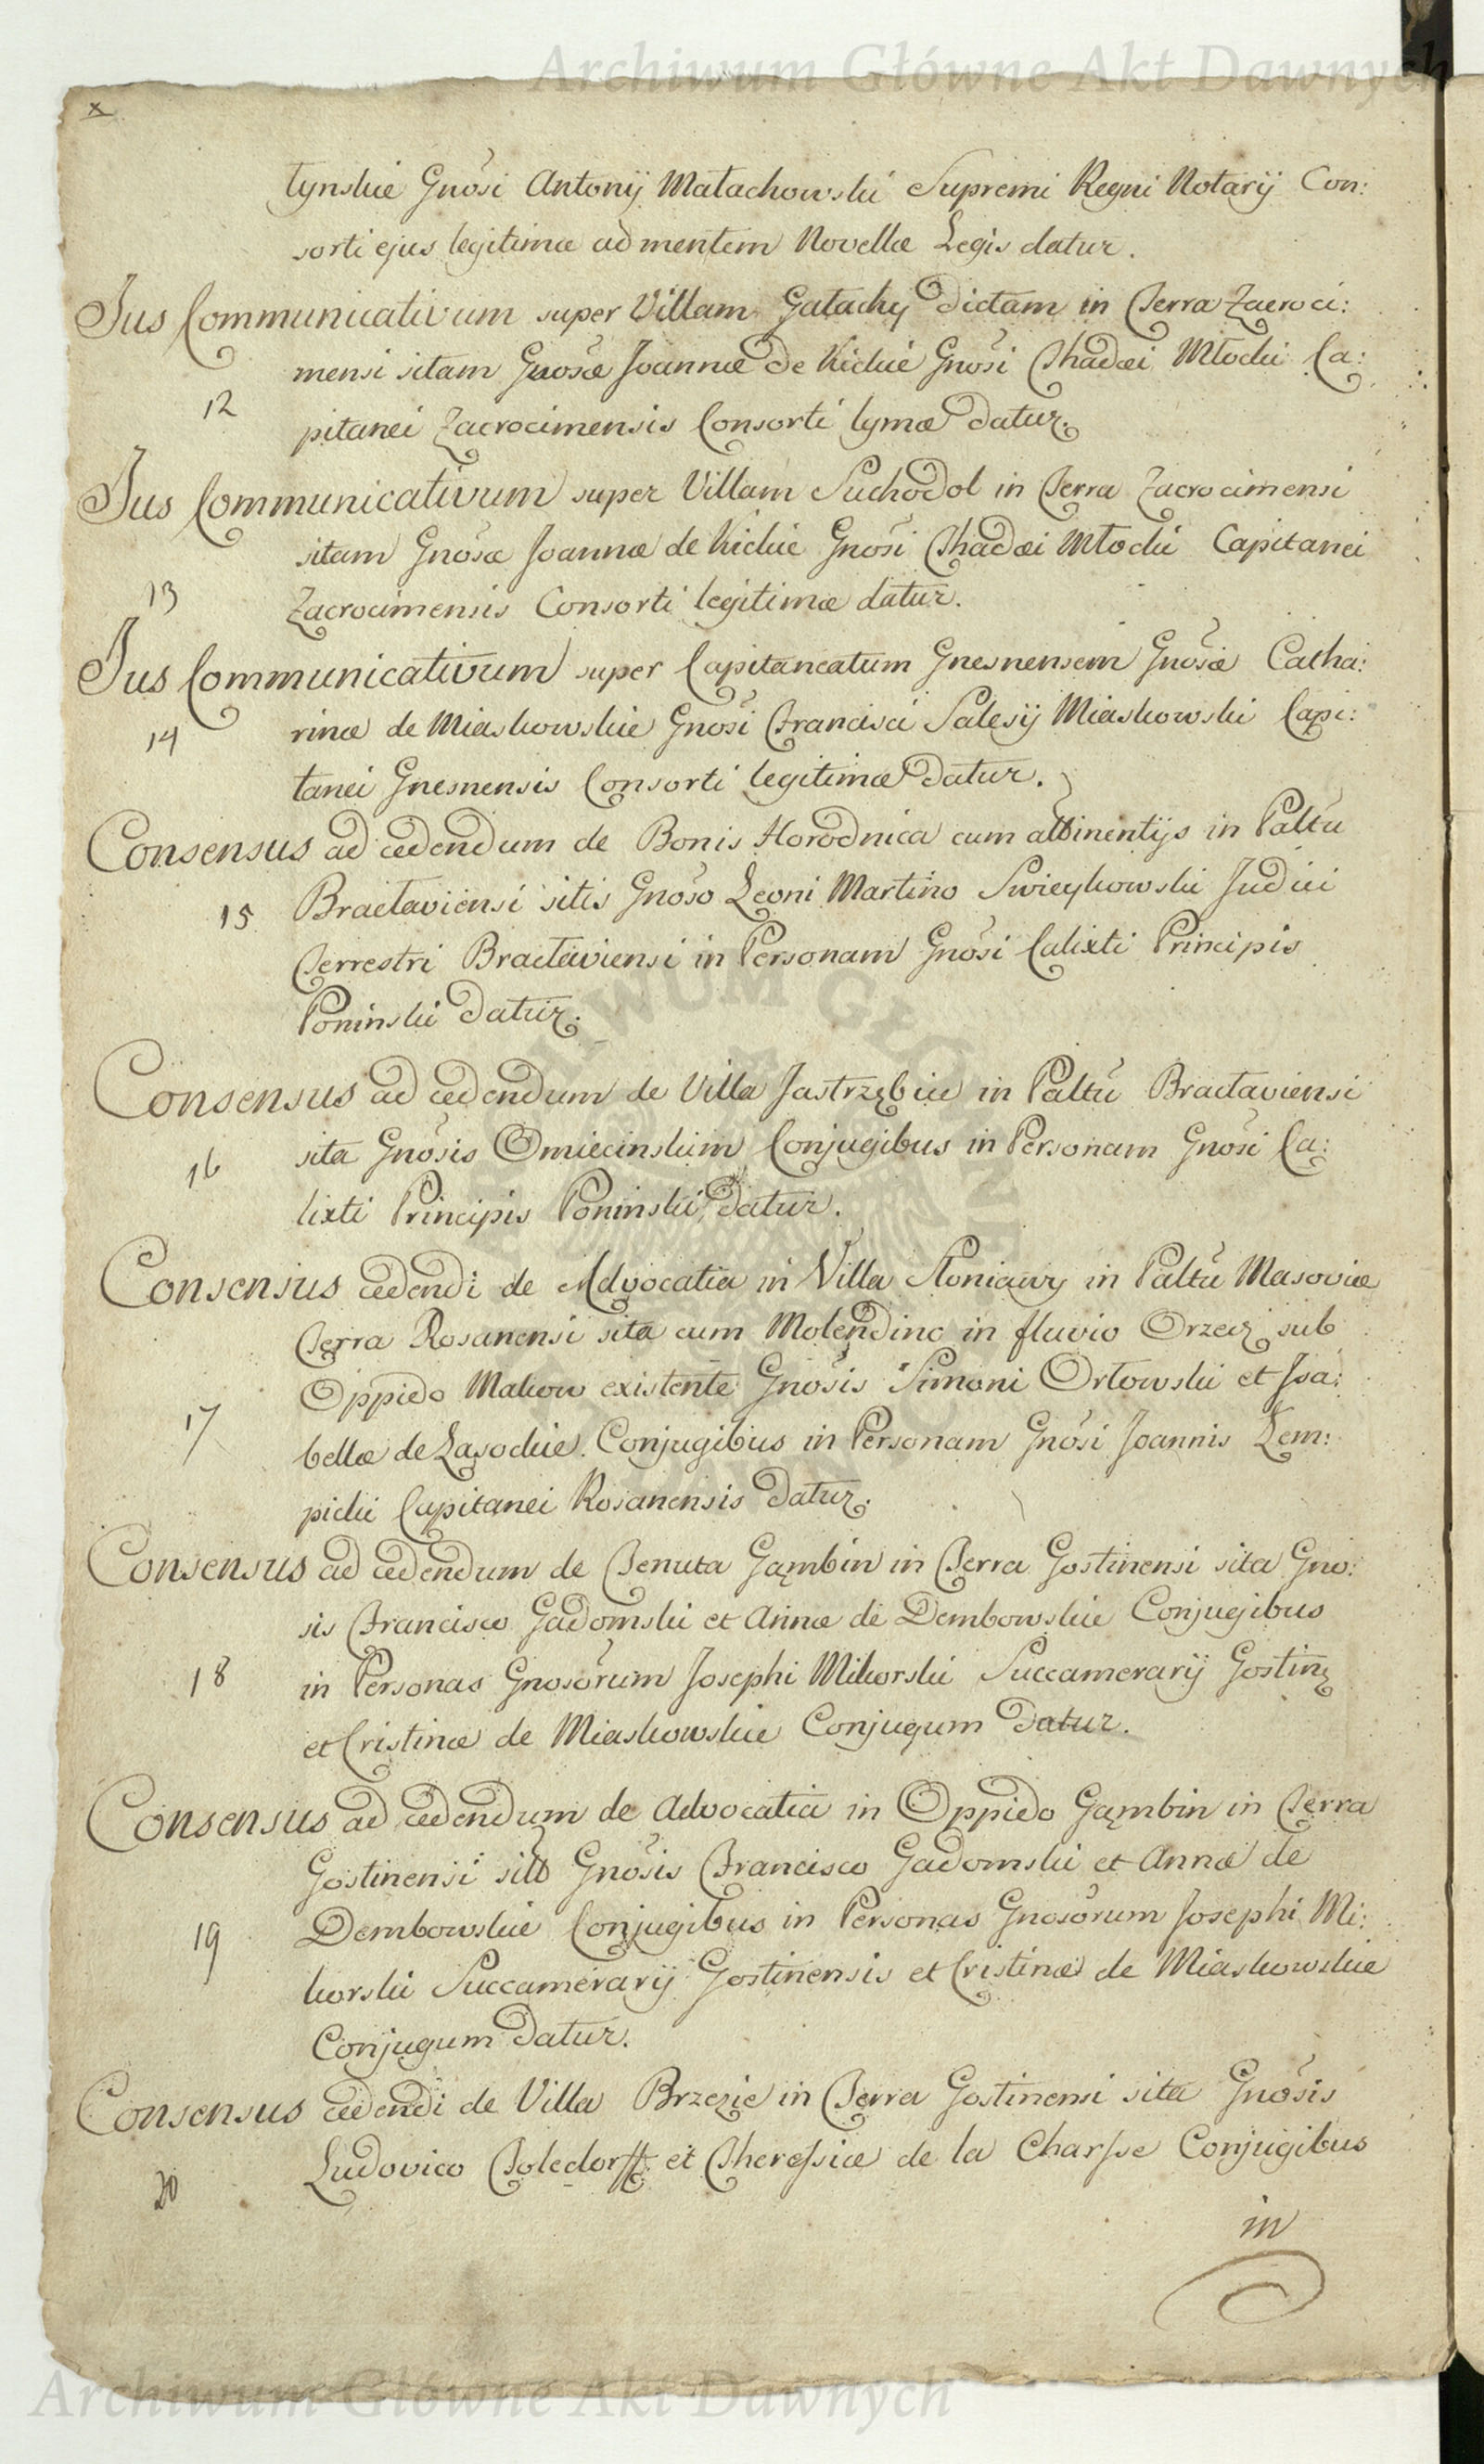 Archiwum Główne Akt Dawnych
x
tynskie Gnosi Antonij Małachowski Supremi Regni Notarij Con:
sorti ejus legitimæ ad mentem Novellæ Legis datur.
Jus Communicativum super Villam Gałachy dictam in Terra Zacroci:
mensi sitam Gnosæ Joannæ de Kickie Gnosi Thadæi Młocki Ca:
12
pitanei Zacrocimensis Consorti lgmæ datur.
Jus Communicativum super Villam Suchodol in Terra Zacrocimensi
sitam Gnosæ Joannæ de Kickie Gnosi Thadæi Młocki Capitanei
13
Zacrocimensis Consorti legitimæ datur.
Jus Communicativum super Capitaneatum Gnesnensem Gnosæ Catha:
rinæ de Miaskowskie Gnosi Francisci Salesij Miaskowski Capi:
14
tanei Gnesnensis Consorti legitimæ datur.
Consensus ad cedendum de Bonis Horodnica cum attinentijs in Paltu
Braclaviensi sitis Gnoso Leoni Martino Swieykowski Judici
15
Terrestri Braclaviensi in Personam Gnosi Calixti Principis
Poninski datur.
Consensus ad cedendum de Villa Jastrzębice in Paltu Braclaviensi
sita Gnosis Omiecinskim Conjugibus in Personam Gnosi Ca:
16
lixti Principis Poninski datur.
Consensus cedendi de Advocatia in Villa Słoniawy in Paltu Masoviæ
Terra Rosanensi sita cum Molendino in fluvio Orzec sub
Oppido Makow existente Gnosis Simoni Orłowski et Isa:
17
bellæ de Lasockie Conjugibus in Personam Gnosi Joannis Lem:
picki Capitanei Rosanensis datur.
Consensus ad cedendum de Tenuta Gąmbin in Terra Gostinensi sita Gno:
sis Francisco Gadomski et Annæ de Dembowskie Conjugibus
18
in Personas Gnosorum Josephi Mikorski Succamerarij Gostin
et Cristinæ de Miaskowskie Conjugum datur.
Consensus ad cedendum de Advocatia in Oppido Gąmbin in Terra
Gostinensi sito Gnosis Francisco Gadomski et Annæ de
19
Dembowskie Conjugibus in Personas Gnosorum Josephi Mi:
korski Succamerarij Gostinensis et Cristinæ de Miaskowskie
Conjugum datur.
Consensus cedendi de Villa Brzezie in Terra Gostinensi sita Gnosis
20
Ludovico et Theressiæ de la Charsse Conjugibus
in
Archiwum Główne Akt Dawnych